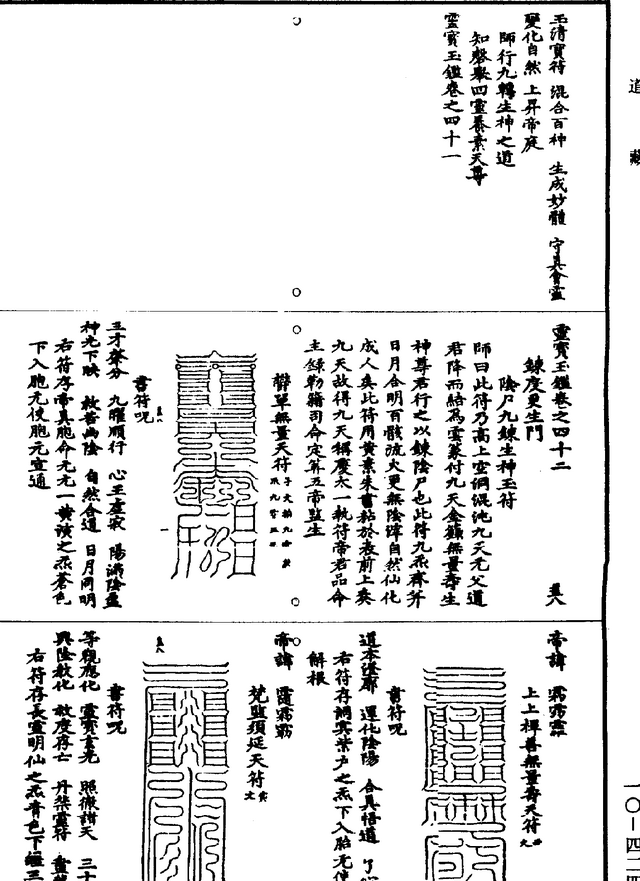 道藏
玉清寶符 混合百神 生成妙體 守真會靈
變化自然 上昇帝庭
師行九轉生神之道
知磬舉四靈養素天尊
靈寶玉鑑卷之四十一
靈寶玉鑑卷之四十二
鍊度更生門
陰尸九鍊生神玉符
師曰此符乃高上空洞混沌九天元父道
君降而結為雲篆付九天金籙無量壽生
神尊君行之以鍊陰尸也此符九炁齊并
日月合明百骸流火更無陰滓自然仙化
成人矣此符用黃素朱書粘於表前上奏
九天故得九天稱慶太一執符帝君品命
主錄勒籍司命定筭五帝監生
鬱單無量天符
書符呪
三才察分 九曜順行 心王虛寂 陽滿陰盈
神光下映 救苦幽陰 自然合道 日月同明
右符存帝真胞命元元一黃演之炁蒼色
下入胞元使胞元宣通
帝諱
上上禪善無量壽天符
書符呪
道本遼廓 運化陰陽 合真悟道
右符存洞冥紫戶之炁下入胎元使
解根
帝諱
梵監須延天符
書符呪
等觀應化 靈寶玄光 照徹諸天 三十
興陰救化 救度存亡 丹桀靈符
右符存長靈明仙之炁青色下纏三
一〇－四二四